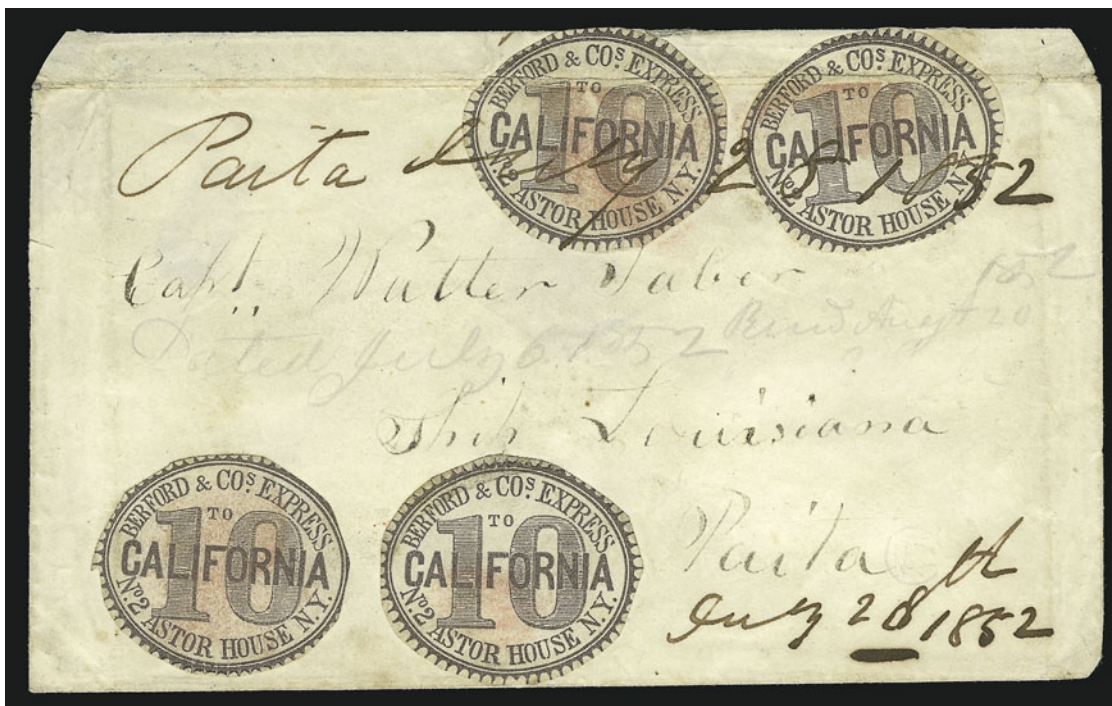 BERFORD & COS EXPRESS
TO
10
CALIFORNIA
No 2 ASTOR HOUSE N.Y.
BERFORD & COS EXPRESS
TO
10
CALIFORNIA
No 2 ASTOR HOUSE N.Y.
Paita July 28 1852
Capt,, Walter Taber
Dated July 6 1852
Augt 20
Ship Louisiana
Paita
July 28 1852
BERFORD & COS EXPRESS
TO
10
CALIFORNIA
No 2 ASTOR HOUSE N.Y.
BERFORD & COS EXPRESS
TO
10
CALIFORNIA
No 2 ASTOR HOUSE N.Y.